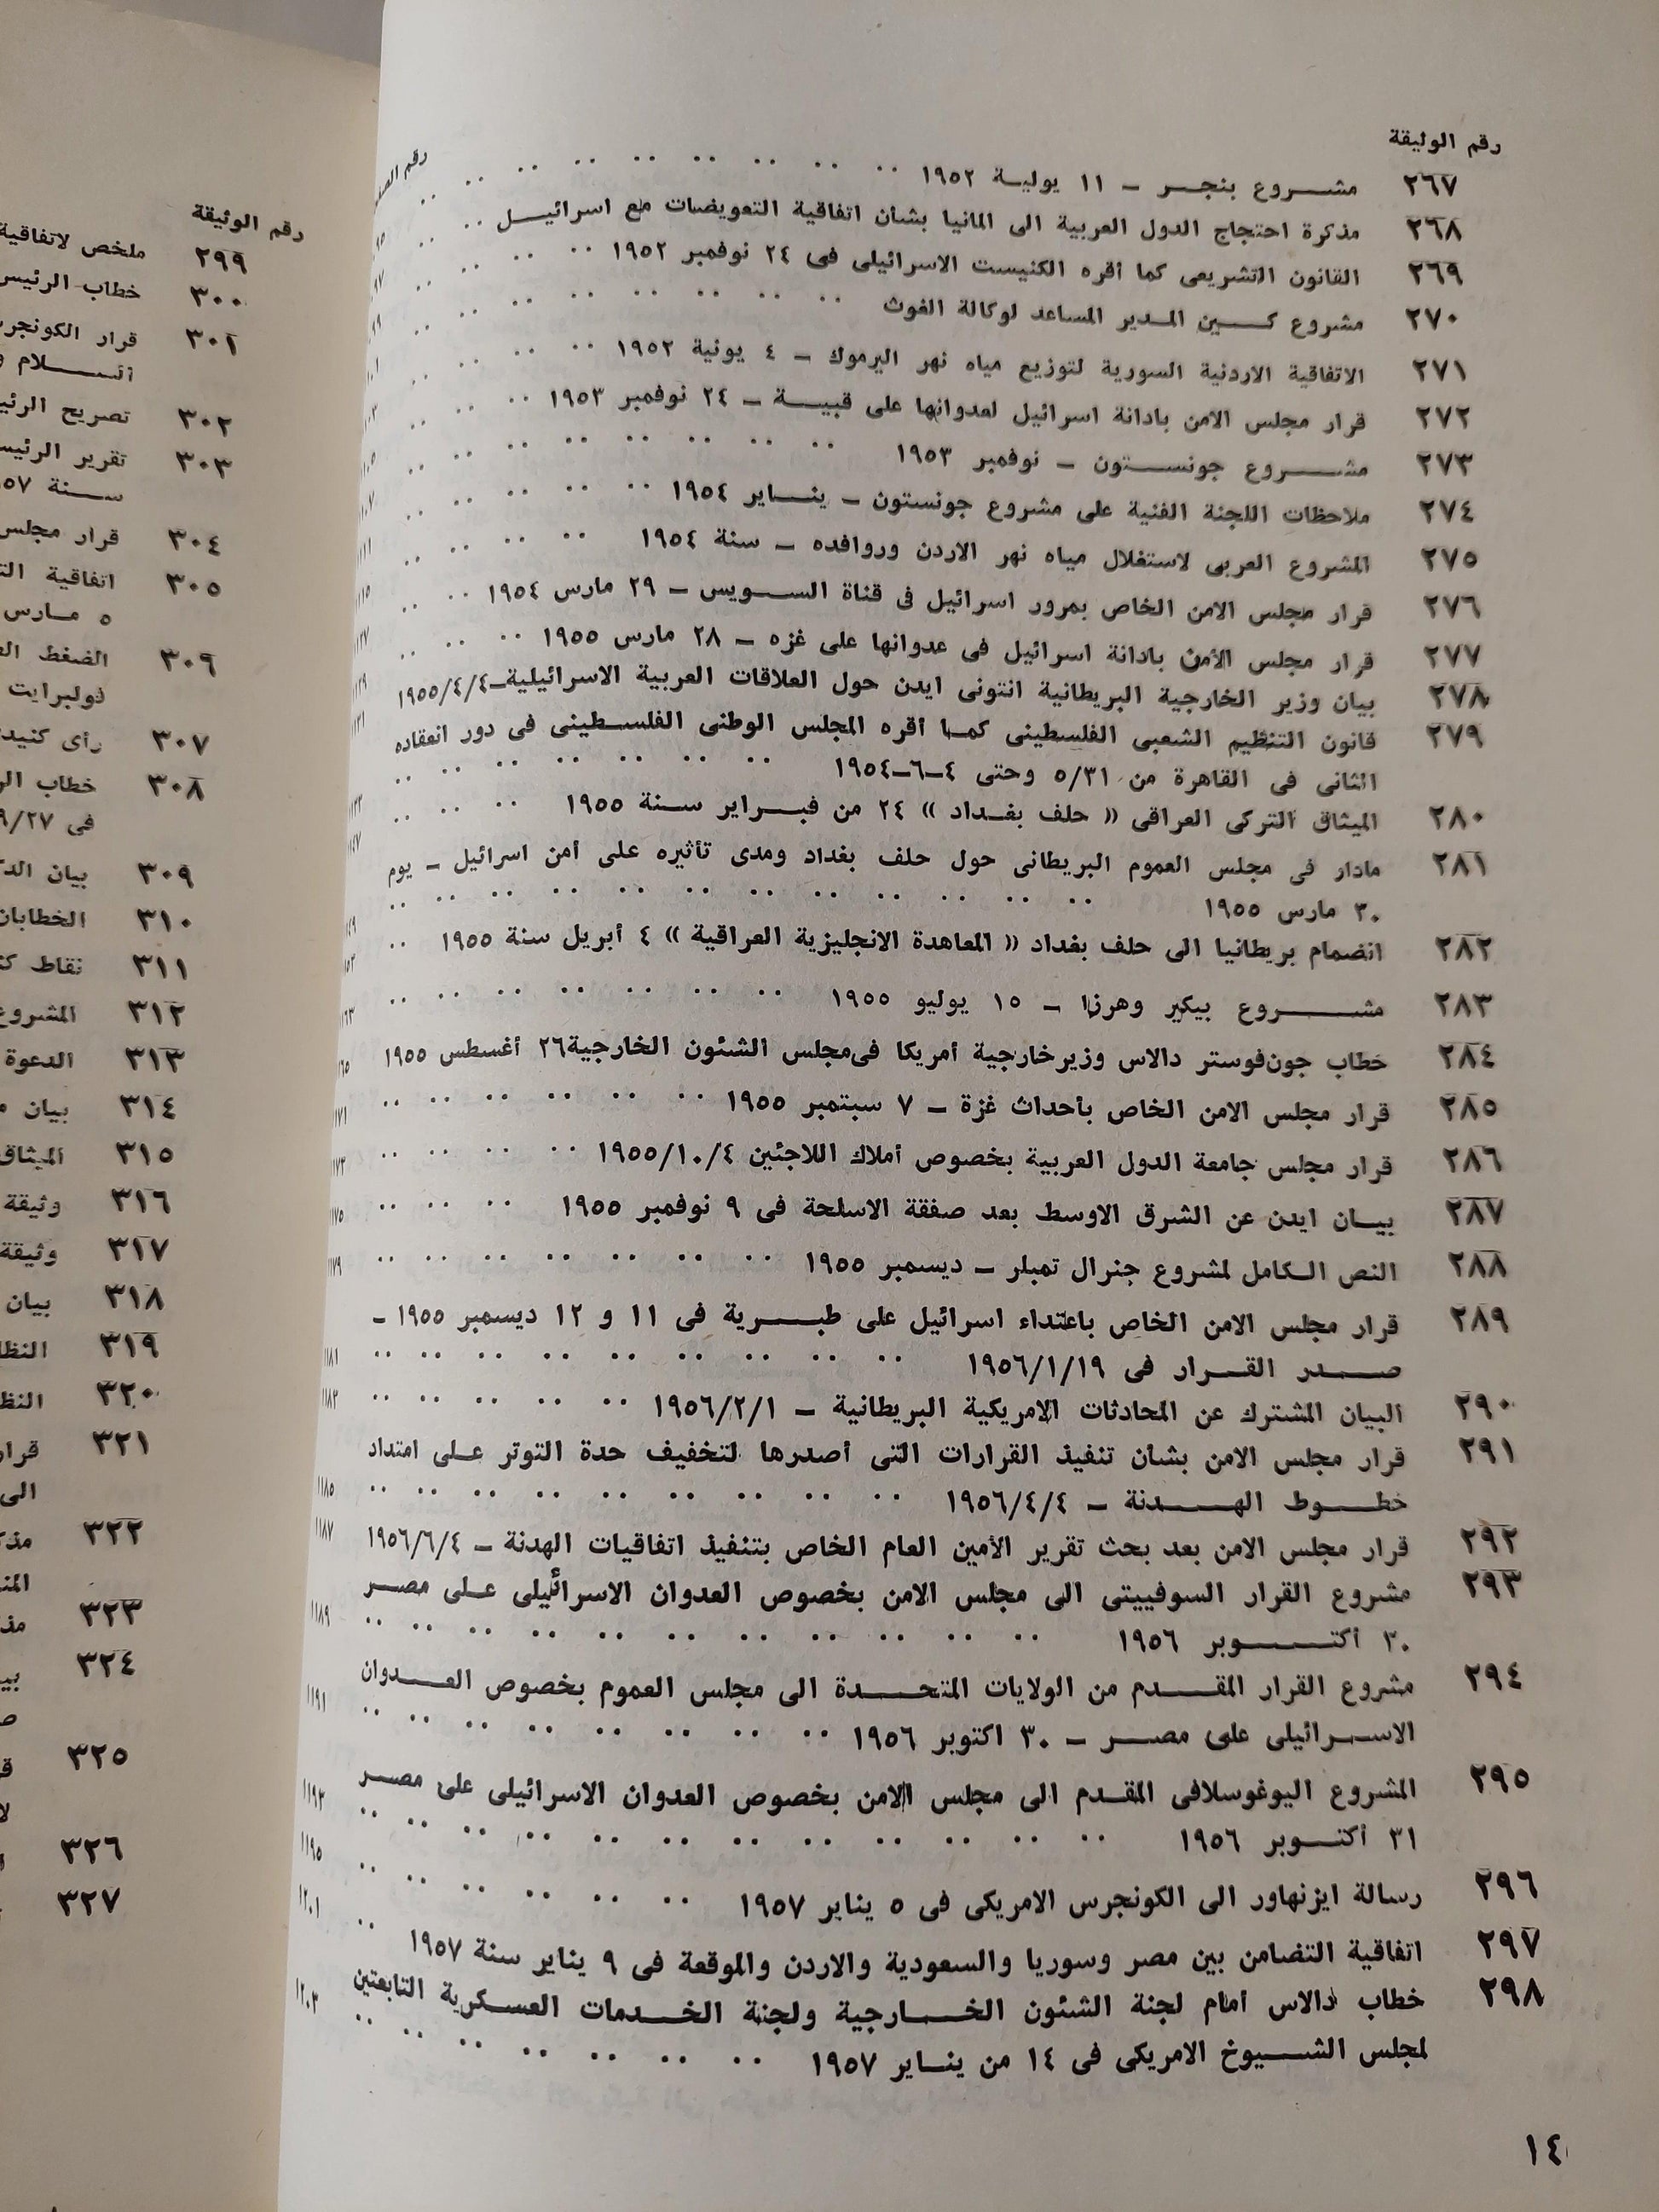 رقم الوثيقة
٢٦٧ مشروع بنجر – ١١ يولية ١٩٥٢
٢٦٨ مذكرة احتجاج الدول العربية الى المانيا بشأن اتفاقية التعويضات مع اسرائيل
٢٦٩ القانون التشريعى كما أقره الكنيست الاسرائيلى فى ٢٤ نوفمبر ١٩٥٢
٢٧٠ مشروع كين المدير المساعد لوكالة الغوث
٢٧١ الاتفاقية الاردنية السورية لتوزيع مياه نهر اليرموك – ٤ يونية ١٩٥٢
٢٧٢ قرار مجلس الامن بادانة اسرائيل لعدوانها على قبية – ٢٤ نوفمبر ١٩٥٣
٢٧٣ مشروع جونستون – نوفمبر ١٩٥٣
٢٧٤ ملاحظات اللجنة الفنية على مشروع جونستون – يناير ١٩٥٤
٢٧٥ المشروع العربى لاستغلال مياه نهر الاردن وروافده – سنة ١٩٥٤
٢٧٦ قرار مجلس الامن الخاص بمرور اسرائيل فى قناة السويس – ٢٩ مارس ١٩٥٤
٢٧٧ قرار مجلس الأمن بادانة اسرائيل فى عدوانها على غزه – ٢٨ مارس ١٩٥٥
٢٧٨ بيان وزير الخارجية البريطانية انتونى ايدن حول العلاقات العربية الاسرائيلية–١٩٥٥/٤/٤
٢٧٩ قانون التنظيم الشعبى الفلسطينى كما أقره المجلس الوطنى الفلسطينى فى دور انعقاده
الثانى فى القاهرة من ٥/٣١ وحتى ٤–٦–١٩٥٤
٢٨٠ الميثاق التركى العراقى « حلف بغداد » ٢٤ من فبراير سنة ١٩٥٥
٢٨١ مادار فى مجلس العموم البريطانى حول حلف بغداد ومدى تأثيره على أمن اسرائيل – يوم
٣٠ مارس ١٩٥٥
٢٨٢ انضمام بريطانيا الى حلف بغداد « المعاهدة الانجليزية العراقية » ٤ أبريل سنة ١٩٥٥
٢٨٣ مشروع بيكير وهرزا – ١٥ يوليو ١٩٥٥
٢٨٤ خطاب جون فوستر دالاس وزير خارجية أمريكا فى مجلس الشئون الخارجية ٢٦ أغسطس ١٩٥٥
٢٨٥ قرار مجلس الامن الخاص بأحداث غزة – ٧ سبتمبر ١٩٥٥
٢٨٦ قرار مجلس جامعة الدول العربية بخصوص أملاك اللاجئين ١٩٥٥/١٠/٤
٢٨٧ بيان ايدن عن الشرق الاوسط بعد صفقة الاسلحة فى ٩ نوفمبر ١٩٥٥
٢٨٨ النص الكامل لمشروع جنرال تمبلر – ديسمبر ١٩٥٥ ١١٧٩
٢٨٩ قرار مجلس الامن الخاص باعتداء اسرائيل على طبرية فى ١١ و ١٢ ديسمبر ١٩٥٥ –
صدر القرار فى ١٩٥٦/١/١٩ ١١٨١
٢٩٠ البيان المشترك عن المحادثات الامريكية البريطانية – ١٩٥٦/٢/١ ١١٨٣
٢٩١ قرار مجلس الامن بشأن تنفيذ القرارات التى أصدرها لتخفيف حدة التوتر على امتداد
خطوط الهدنة – ١٩٥٦/٤/٤ ١١٨٥
٢٩٢ قرار مجلس الامن بعد بحث تقرير الأمين العام الخاص بتنفيذ اتفاقيات الهدنة – ١٩٥٦/٦/٤ ١١٨٧
٢٩٣ مشروع القرار السوفييتى الى مجلس الامن بخصوص العدوان الاسرائيلى على مصر
٣٠ أكتوبر ١٩٥٦ ١١٨٩
٢٩٤ مشروع القرار المقدم من الولايات المتحدة الى مجلس العموم بخصوص العدوان
الاسرائيلى على مصر – ٣٠ اكتوبر ١٩٥٦ ١١٩١
٢٩٥ المشروع اليوغوسلافى المقدم الى مجلس الامن بخصوص العدوان الاسرائيلى على مصر
٣١ أكتوبر ١٩٥٦ ١١٩٣
٢٩٦ رسالة ايزنهاور الى الكونجرس الامريكى فى ٥ يناير ١٩٥٧ ١١٩٥
٢٩٧ اتفاقية التضامن بين مصر وسوريا والسعودية والاردن والموقعة فى ٩ يناير سنة ١٩٥٧ ١٢٠١
٢٩٨ خطاب دالاس أمام لجنة الشئون الخارجية ولجنة الخدمات العسكرية التابعتين
لمجلس الشيوخ الامريكى فى ١٤ من يناير ١٩٥٧ ١٢٠٣
١٤
رقم الوثيقة
٢٩٩ ملخص لاتفاقية
٣٠٠ خطاب الرئيس
٣٠١ قرار
السلام
٣٠٢ تصريح
٣٠٣ تقرير الرئيس
سنة
٣٠٤ قرار مجلس
٣٠٥ اتفاقية
٥ مارس
٣٠٦ الضغط
فولبرايت
٣٠٧ رأى
٣٠٨ خطاب
فى
٣٠٩ بيان
٣١٠ الخطابان
٣١١ نقاط
٣١٢ المشروع
٣١٣ الدعوة
٣١٤ بيان
٣١٥ الميثاق
٣١٦ وثيقة
٣١٧ وثيقة
٣١٨ بيان
٣١٩
٣٢٠
٣٢١
الى
٣٢٢
٣٢٣
٣٢٤
٣٢٥
٣٢٦
٣٢٧